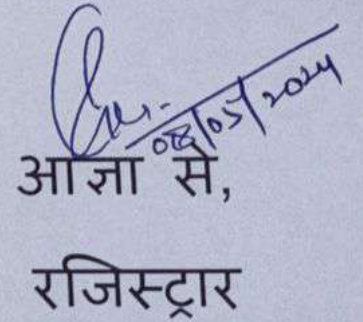 08/05/2024
आज्ञा से,
रजिस्ट्रार